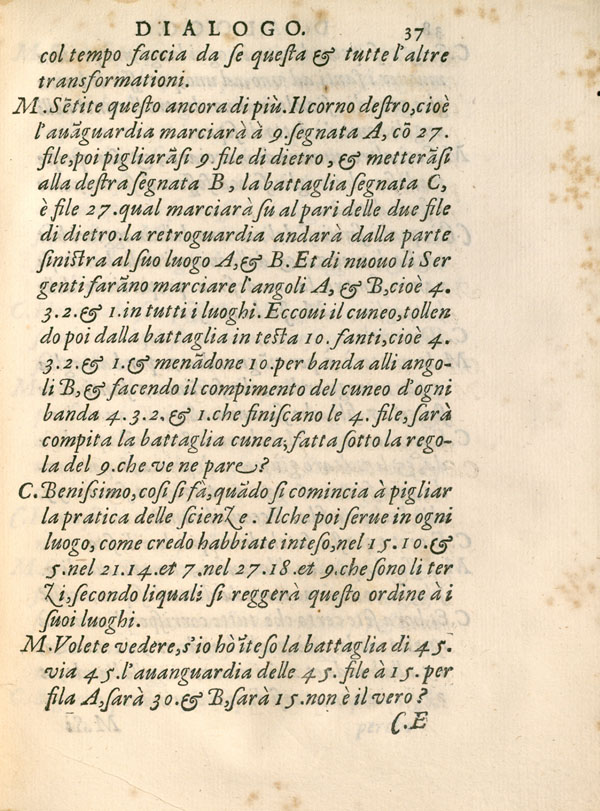 DIALOGO. 37
col tempo faccia da se queſta & tutte l'altre
transformationi.
M. Sẽtite queſto ancora di più. Il corno deſtro, cioè
l'auãguardia marciarà à 9. ſegnata A, cõ 27.
file, poi pigliarãſi 9. file di dietro, & metterãſi
alla deſtra ſegnata B, la battaglia ſegnata C,
è file 27. qual marciarà ſu al pari delle due file
di dietro. la retroguardia andarà dalla parte
ſiniſtra al ſuo luogo A, & B. Et di nuouo li Ser
genti farãno marciare l'angoli A, & B, cioè 4.
3. 2. & 1. in tutti i luoghi. Eccoui il cuneo, tollen
do poi dalla battaglia in teſta 10. fanti, cioè 4.
3. 2. & 1. & menãdone 10. per banda alli ango-
li B, & facendo il compimento del cuneo d'ogni
banda 4. 3. 2. & 1. che finiſcano le 4. file, ſarà
compita la battaglia cunea, fatta ſotto la rego-
la del 9. che ve ne pare?
C. Beniſsimo, coſi ſi fà, quãdo ſi comincia à pigliar
la pratica delle ſcienze. Ilche poi ſerue in ogni
luogo, come credo habbiate inteſo, nel 15. 10. &
5. nel 21. 14. et 7. nel 27. 18. et 9. che ſono li ter
zi, ſecondo liquali ſi reggerà queſto ordine à i
ſuoi luoghi.
M. Volete vedere, s'io hò ĩteſo la battaglia di 45.
via 45. l'auanguardia delle 45. file à 15. per
fila A, ſarà 30. & B, ſarà 15. non è il vero?
C. E